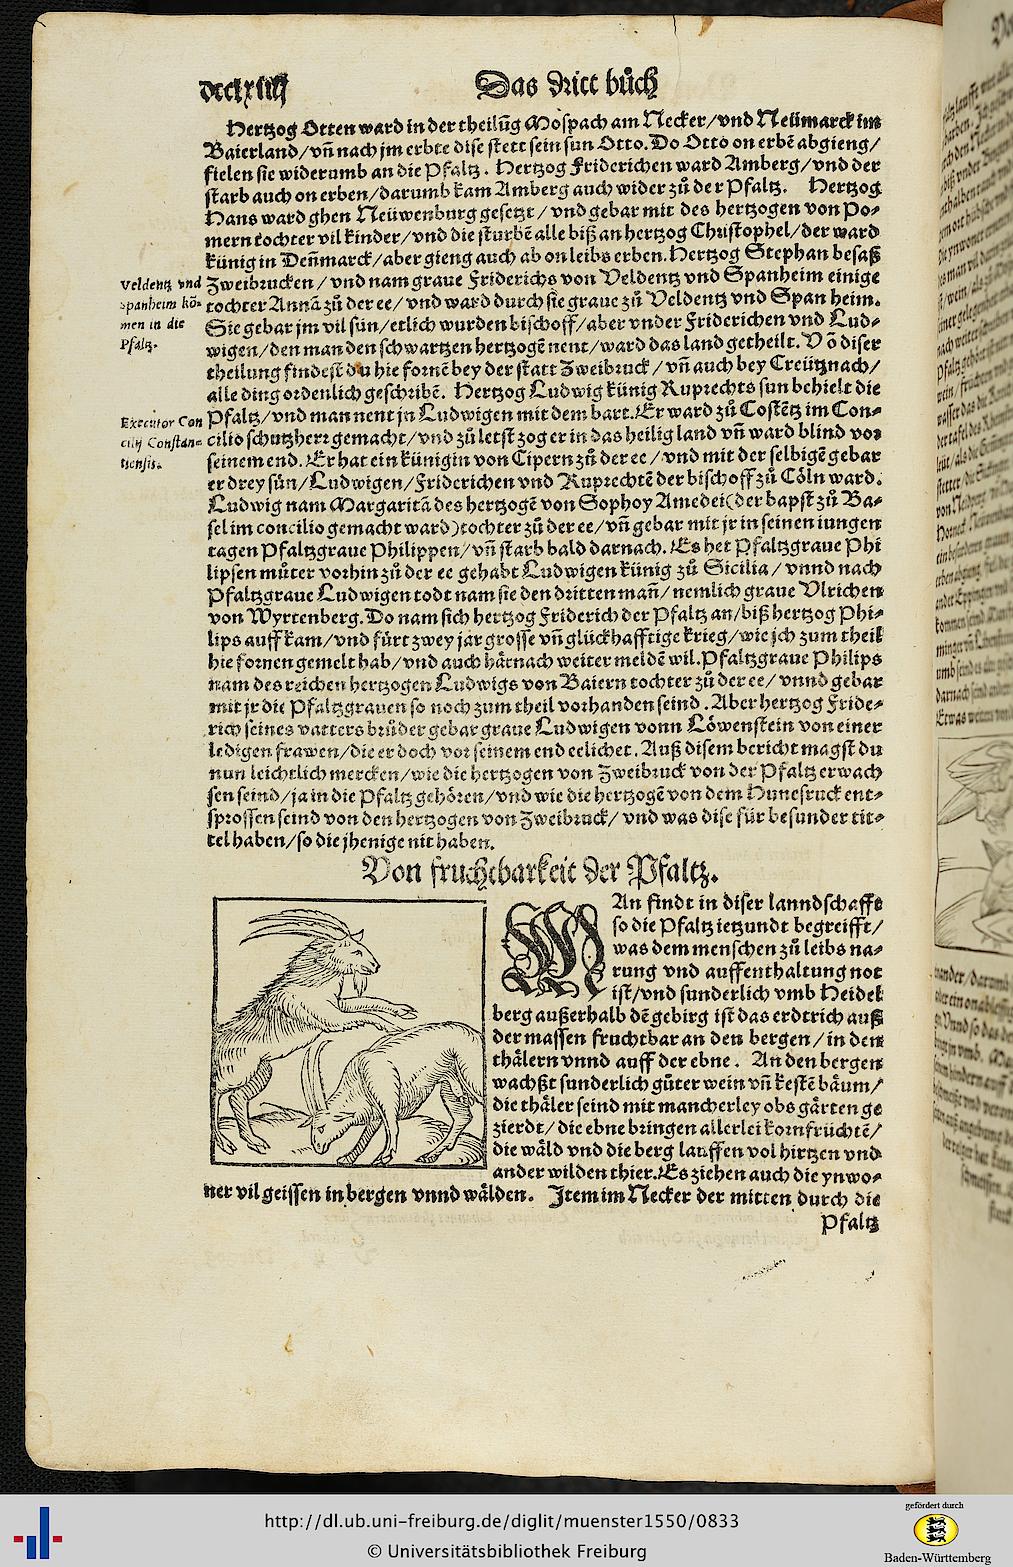 dcclxiiij
Das dritt bůch
Hertzog Otten ward in der theilũg Mospach am Necker/vnd Neümarck im
Baierland/vñ nach jm erbte dise stett sein sun Otto. Do Otto on erbẽ abgieng/
fielen sie widerumb an die Pfaltz. Hertzog Friderichen ward Amberg/vnd der
starb auch on erben/darumb kam Amberg auch wider zů der Pfaltz. Hertzog
Hans ward ghen Neüwenburg gesetzt/vnd gebar mit des hertzogen von Po-
mern tochter vil kinder/vnd die sturbẽ alle biß an hertzog Christophel/der ward
künig in Deñmarck/aber gieng auch ab on leibs erben. Hertzog Stephan besaß
Zweibrucken/vnd nam graue Friderichs von Veldentz vnd Spanheim einige
tochter Annã zů der ee/vnd ward durch sie graue zů Veldentz vnd Spanheim.
Sie gebar jm vil sün/etlich wurden bischoff/aber vnder Friderichen vnd Lud-
wigen/den man den schwartzen hertzogẽ nent/ward das land getheilt. Võ diser
theilung findest du hie fornẽ bey der statt Zweibruck/vñ auch bey Creütznach/
alle ding ordenlich geschribẽ. Hertzog Ludwig künig Ruprechts sun behielt die
Pfaltz/vnd man nent jn Ludwigen mit dem bart. Er ward zů Costẽtz im Con-
cilio schutzherr gemacht/vnd zů letst zog er in das heilig land vñ ward blind vor
seinem end. Er hat ein künigin von Cipern zů der ee/vnd mit der selbigẽ gebar
er drey sün/Ludwigen/Friderichen vnd Ruprechtẽ der bischoff zů Cöln ward.
Ludwig nam Margaritã des hertzogẽ von Sophoy Amedei(der bapst zů Ba-
sel im concilio gemacht ward)tochter zů der ee/vñ gebar mit jr in seinen iungen
tagen Pfaltzgraue Philippen/vñ starb bald darnach. Es het Pfaltzgraue Phi
lipsen můter vorhin zů der ee gehabt Ludwigen künig zů Sicilia/vnnd nach
Pfaltzgraue Ludwigen todt nam sie den dritten mañ/nemlich graue Vlrichen
von Wyrtenberg. Do nam sich hertzog Friderich der Pfaltz an/biß hertzog Phi-
lips auff kam/vnd fůrt zwey jar grosse vñ glückhafftige krieg/wie jch zum theil
hie fornen gemelt hab/vnd auch härnach weiter meldẽ wil. Pfaltzgraue Philips
nam des reichen hertzogen Ludwigs von Baiern tochter zů der ee/vnnd gebar
mit jr die Pfaltzgrauen so noch zum theil vorhanden seind. Aber hertzog Fride-
rich seines vatters brůder gebar graue Ludwigen vonn Löwenstein von einer
ledigen frawen/die er doch vor seinem end eelichet. Auß disem bericht magst du
nun leichtlich mercken/wie die hertzogen von Zweibruck von der Pfaltz erwach
sen seind/ja in die Pfaltz gehören/vnd wie die hertzogẽ von dem Hunesruck ent-
sprossen seind von den hertzogen von Zweibruck/vnd was dise für besunder tit-
tel haben/so die jhenige nit haben.
Veldentz vnd
Spanheim kõ-
men in die
Pfaltz.
Executor Con
cilij Constan-
tiensis.
Von fruchtbarkeit der Pfaltz.
MAn findt in diser lanndschafft
so die Pfaltz ietzundt begreifft/
was dem menschen zů leibs na-
rung vnd auffenthaltung not
ist/vnd sunderlich vmb Heidel
berg außerhalb dẽ gebirg ist das erdtrich auß
der massen fruchtbar an den bergen/in den
thälern vnnd auff der ebne. An den bergen
wachßt sunderlich gůter wein vñ kestẽ bäum/
die thäler seind mit mancherley obs gärten ge
zierdt/die ebne bringen allerlei kornfrüchtẽ/
die wäld vnd die berg lauffen vol hirtzen vnd
ander wilden thier. Es ziehen auch die ynwo-
ner vil geissen in bergen vnnd wälden. Jtem im Necker der mitten durch die
Pfaltz
http://dl.ub.uni-freiburg.de/diglit/muenster1550/0833
© Universitätsbibliothek Freiburg
gefördert durch
Baden-Württemberg